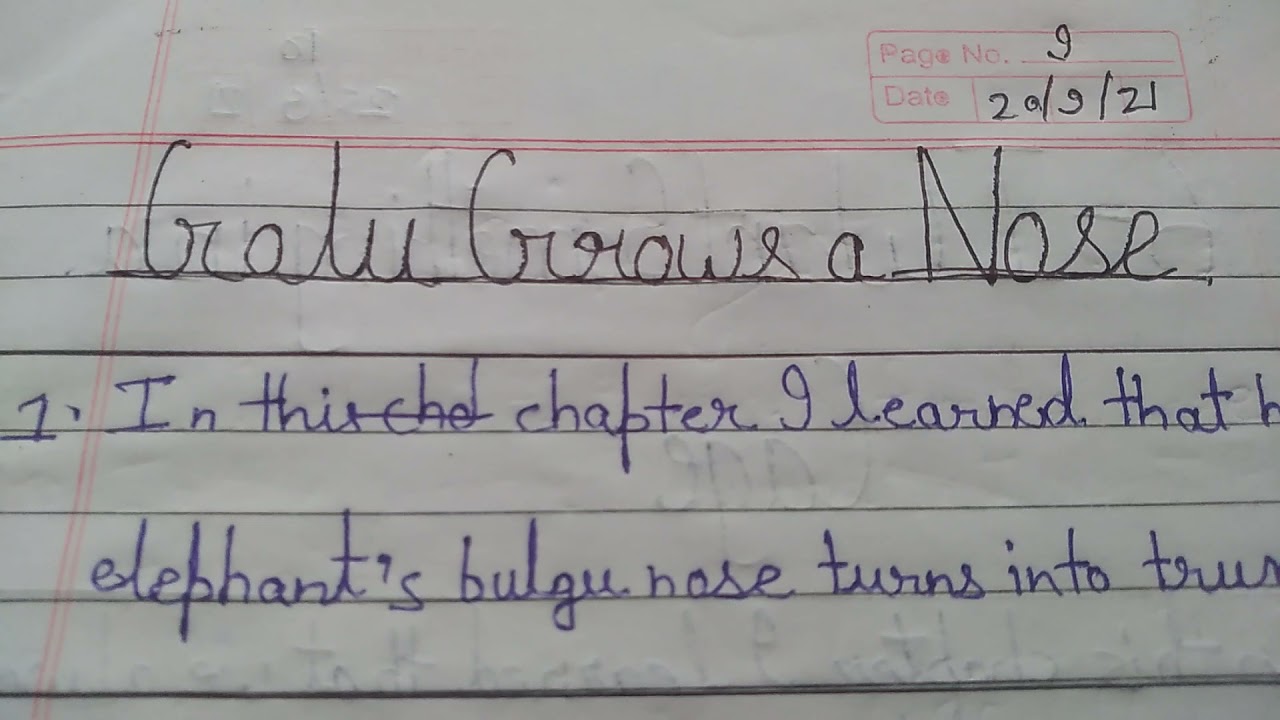 Page No. 9
Date 20/9/21
Golu Grows a Nose
1. In this chd chapter I learned that h
elephant's bulgu nose turns into trun